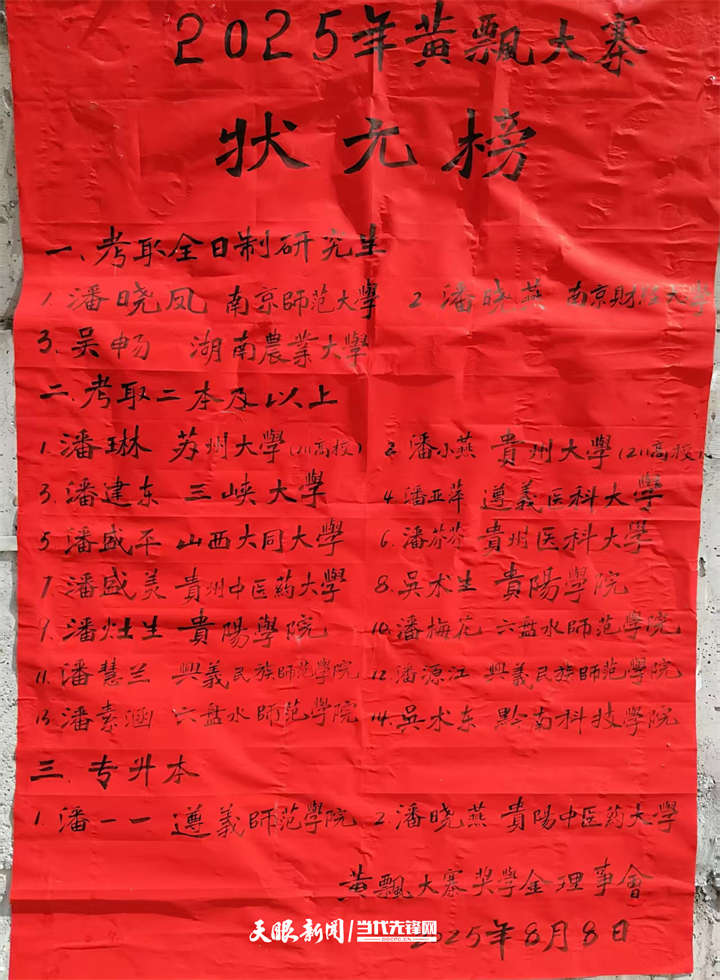 2025年黄飘大寨
状元榜
一、考取全日制研究生
1.潘晓凤 南京師范大學 2 潘晓燕 南京財经大學
3.吴畅 湖南農業大學
二.考取二本及以上
1.潘琳 苏州大學(211高校) 2.潘小燕 貴州大學(211高校)
3.潘建东 三峡大學 4.潘亚萍 遵義医科大學
5.潘盛平 山西大同大學 6.潘芬芬 貴州医科大學
7.潘盛美 貴州中医药大學 8.吳术生 貴陽學院
9.潘灶生 貴陽學院 10.潘梅花 六盘水師范學院
11.潘慧兰 興義民族師范學院 12 潘源江 興義民族師范學院
13.潘素涵 六盘水師范學院 14.吳术东 黔南科技學院
三.专升本
1.潘一一 遵義師范學院 2.潘晓燕 貴陽中医药大學
黄飄大寨奖學金理事會
2025年8月8日
天眼新闻 当代先锋网
DDCPC.CN